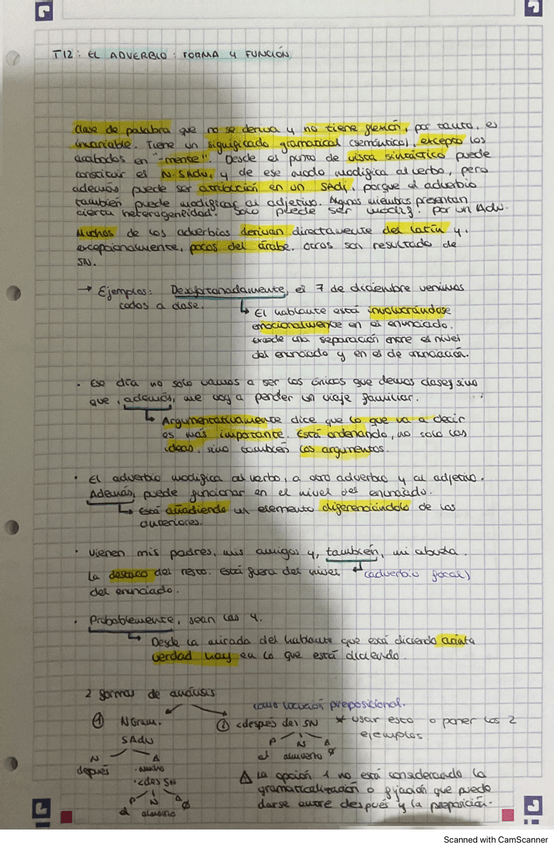 T12: EL ADVERBIO: FORMA Y FUNCIÓN
Clase de palabra que no se deriva y no tiene flexión, por tanto, es
invariable. Tiene un significado gramatical (semántico), excepto los
acabados en "-mente". Desde el punto de vista sintáctico puede
constituir el N. SAdv, y de ese modo modifica al verbo, pero
además puede ser atribución en un SAdj, porque el adverbio
también puede modificar al adjetivo. Algunos miembros presentan
cierta heterogeneidad. Solo puede ser modif. por un Adv.
Muchos de los adverbios derivan directamente del latín y,
excepcionalmente, pocos del árabe. Otros son resultado de
SN.
→ Ejemplos: Desafortunadamente, el 7 de diciembre venimos
todos a clase.
El hablante está involucrándose
emocionalmente en el enunciado.
una separación entre el nivel
del enunciado y en el de
· Ese día no solo vamos a ser los únicos que demos clase, sino
que, además, me voy a perder un viaje familiar.
Argumentativamente dice que lo que va a decir
es más importante. Está ordenando, no solo las
ideas, sino también los argumentos.
· El adverbio modifica al verbo, a otro adverbio y al adjetivo.
Además, puede funcionar en el nivel del enunciado.
Está añadiendo un elemento diferenciándolo de los
anteriores.
· Vienen mis padres, mis amigos y, también, mi abuela.
La destaco del resto. Está fuera del nivel (adverbio focal)
del enunciado.
· Probablemente, sean las 4.
Desde la mirada del hablante que está diciendo cuánta
verdad hay en lo que está diciendo.
2 formas de análisis
como locución preposicional.
① Norm. ② <después del SN * usar esto o poner los 2
SAdv P N A ejemplos
N A el almuerzo Ø
después Núcleo
<de> SN
P N A
el almuerzo Ø
⚠ La opción 1 no está considerando la
gramaticalización o fijación que puede
darse entre después y la preposición.
Scanned with CamScanner